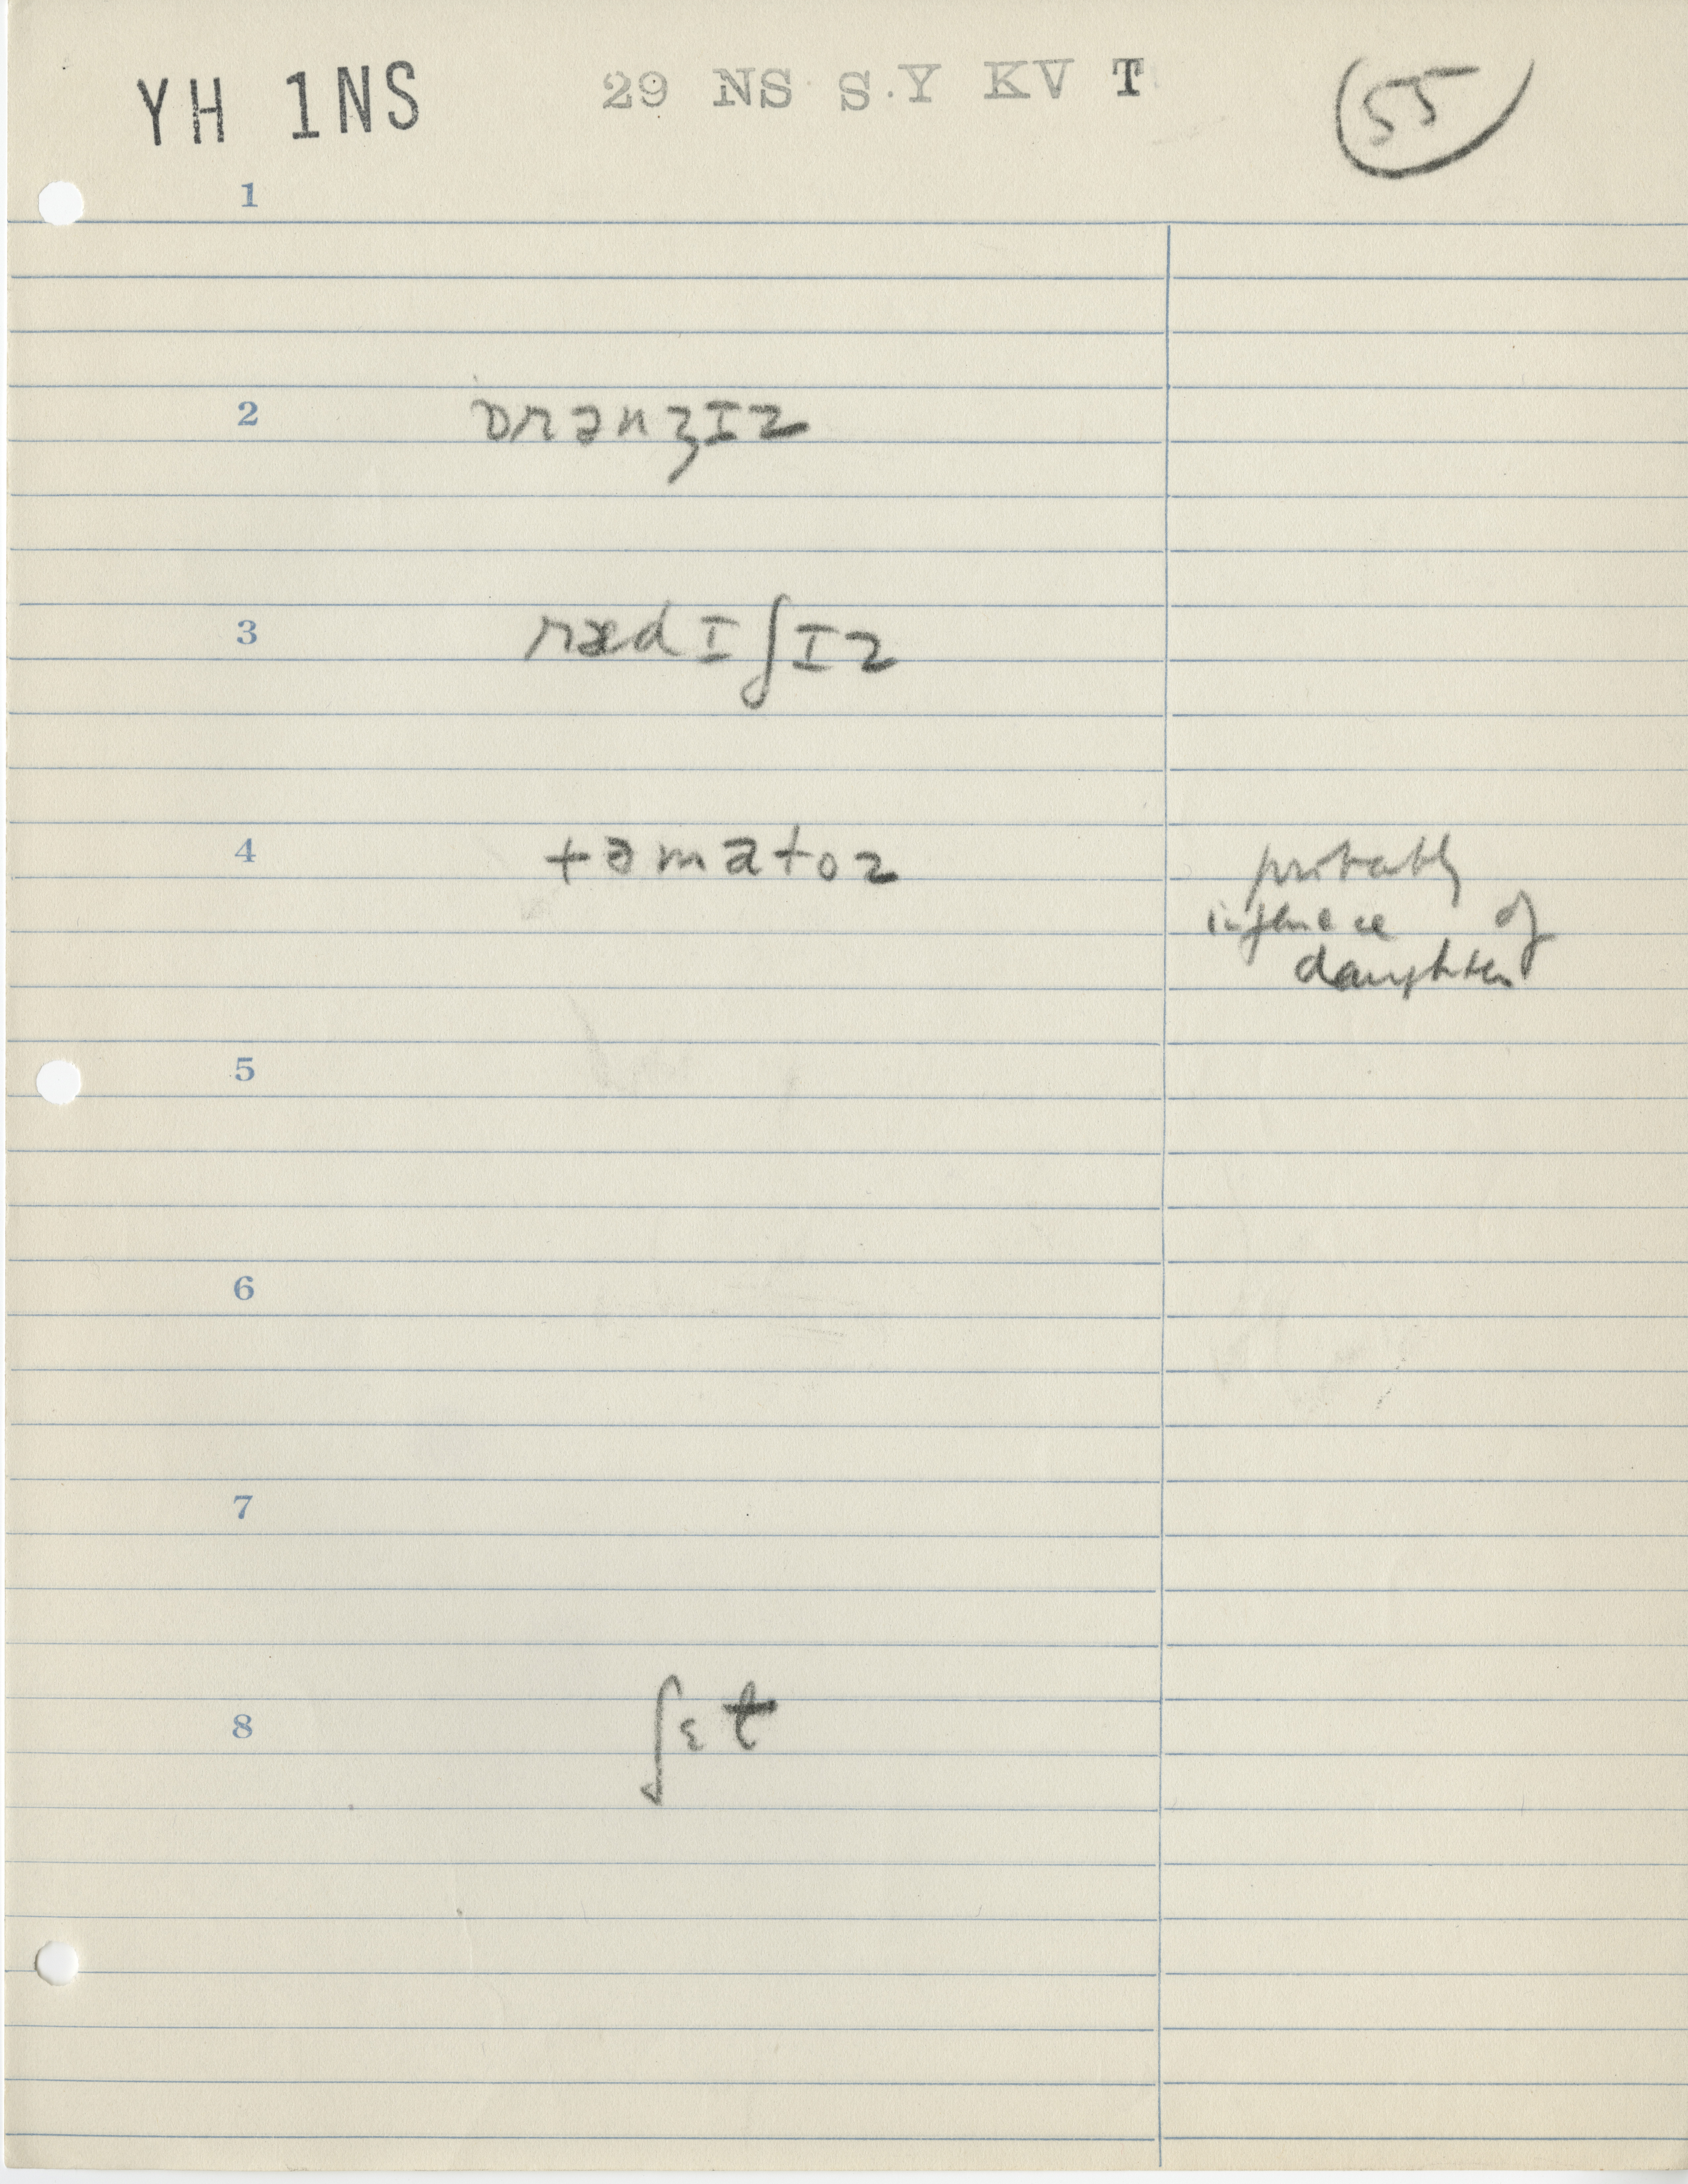 YH 1NS 29 NS S Y KV T 55
1
2 ɒrənʒɪz
3 rædɪʃɪz
4 təmatoz probably
influence of
daughter
5
6
7
8 ʃɛt